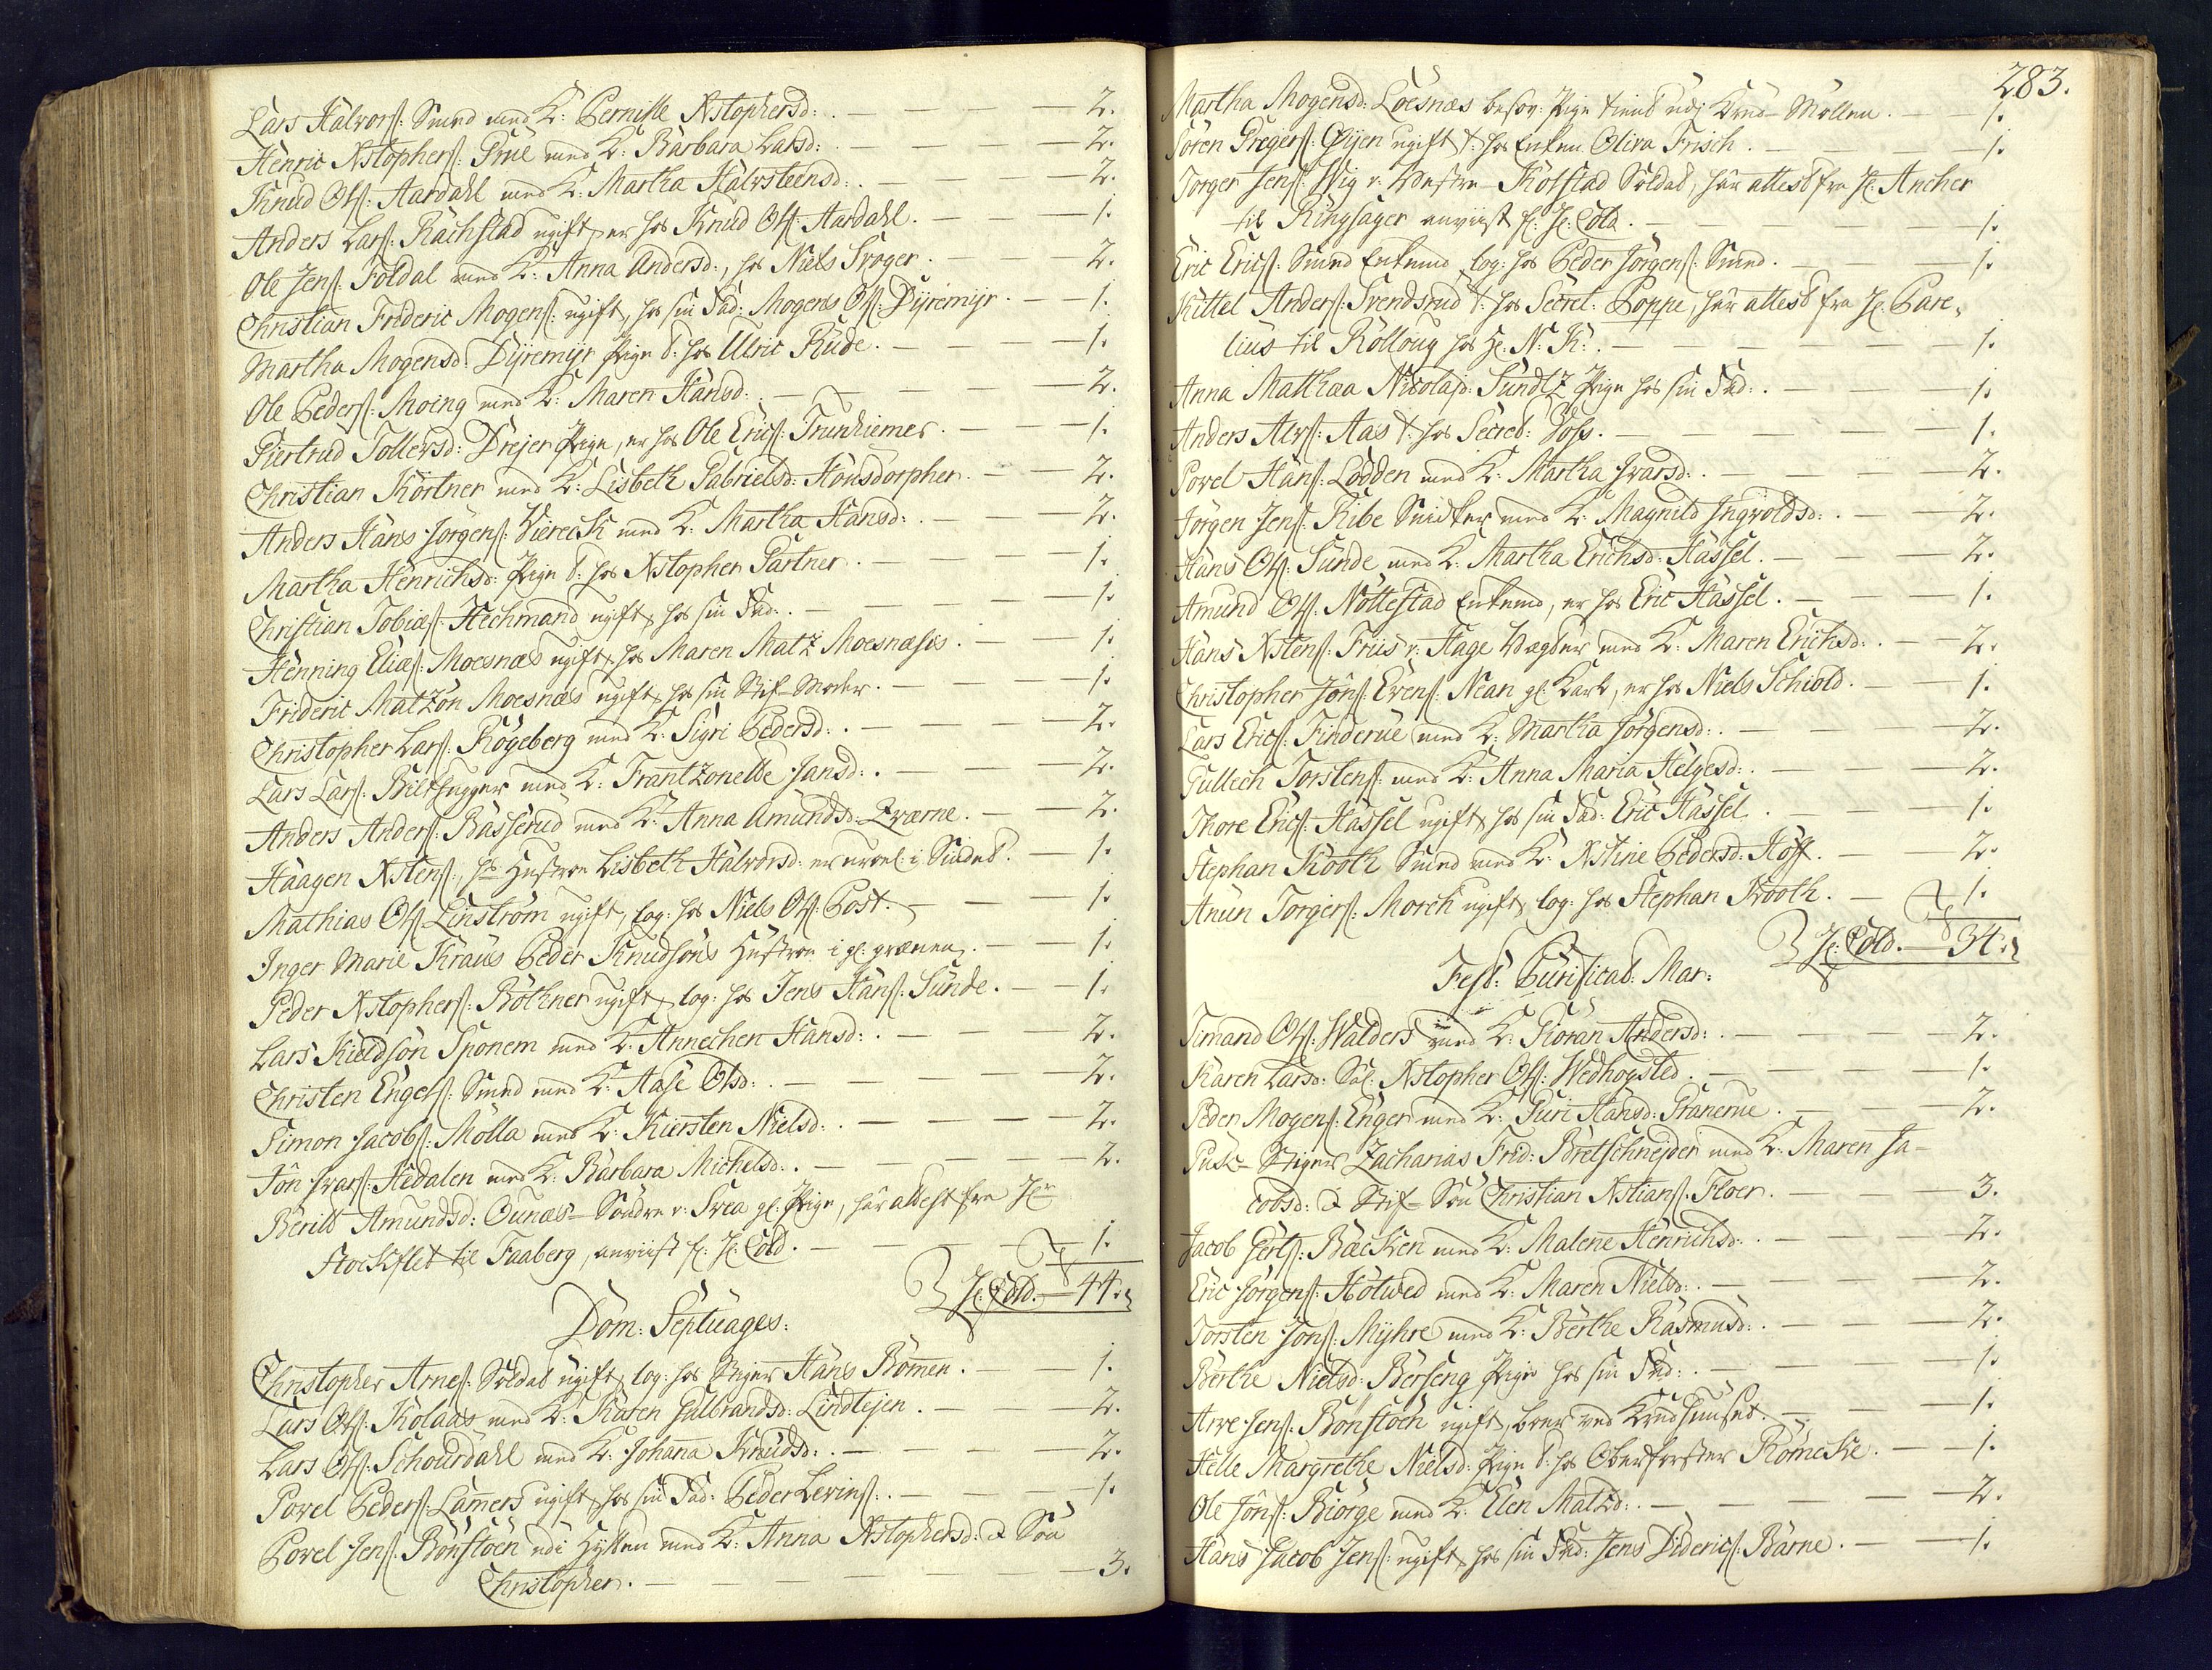 Lars Halvors: Smed med K: Pernille Xstophersd: . — — — 2.
Henric Xstophers: Prüe med K: Barbara Larsd: — — — 2.
Knud Ols: Aardahl med K: Martha Halvsteensd: . — — — 2.
Anders Lars: Rachstad ugift, er hos Knud Ols: Aardahl. — — — 1.
Ole Jens: Foldal med K: Anna Andersd:, hos Niels Troger. — — 2.
Christian Frideric Mogens: ugift, hos sin Fad: Mogens Ols: Dÿremÿr. — — 1.
Martha Mogensd: Dÿremÿr Pige t: hos Ulric Rüde. — — — 1.
Ole Peders: Moing med K: Maren Hansd: . — — — 2.
Giertrud Tollevsd: Drejer Pige, er hos Ole Erics: Trunhiemer. — — 1.
Christian Körtner med K: Lisbeth Gabrielsd: Honsdorpher. — — 2.
Anders Hans Jörgens: Viereck med K: Martha Hansd: . — — 2.
Martha Henrichsd: Pige t: hos Xstopher Gartner. — — 1.
Christian Tobias: Hechmand ugift, hos sin Fad: . — — — 1.
Henning Elias: Moesnæs ugift, hos Maren Matz Moesnæsis. — — 1.
Frideric Matzön Moesnæs ugift, hos sin Stif-Moder. — — 1.
Christopher Lars: Rögeberg med K: Sigri Pedersd: . — — 2.
Lars Lars: Bilthugger med K: Frantzonette Jansd: . — — 2.
Anders Anders: Basserud med K: Anna Amundsd: Qværne. — — 2.
Haagen Xstens:, hs Hustroe Lisbeth Halvorsd: er urøel: i Sindet. — 1.
Mathias Ols: Linström ugift, log: hos Niels Ols: Post. — — 1.
Inger Marie Kraus Peder Knudsöns Hustroe i gl: grænen. — — 1.
Peder Xstophers: Böthner ugift, log: hos Jens Hans: Sunde. — — 1.
Lars Kieldsön Sponem med K: Annechen Hansd: . — — 2.
Christen Engels: Smed med K: Aase Olsd: . — — — 2.
Simon Jacobs: Mölla med K: Kiersten Nielsd: . — — — 2.
Jön Ivars: Hedalen med K: Barbara Michelsd: . — — — 2.
Berith Amundsd: Ounæs-Söndre v: Svea gl: Pige, har attest fra Hr
Stockflet til Faaberg, anviist f: H: Cold. — — — 1.
H: Cold. — 44.
Dom: Septuages:
Christopher Arnes: Soldat ugift, log: hos Stiger Hans Bömen. — — 1.
Lars Ols: Kolaas med K: Karen Gulbrandsd: Lindtejen. — — 2.
Lars Ols: Schourdahl med K: Johanna Knudsd: . — — — 2.
Povel Peders: Lamers ugift, hos sin Fad: Peder Levins: . — — — 1.
Povel Jens: Bönstöen udi Hytten med K: Anna Xstophersd: & Sön
Christopher. — — — — 3.
283.
Martha Mogensd: Loesnæs besov: Pige tient udj Krud-Möllen. — 1.
Sören Gregers: Öijen ugift t: hos Enken Oliva Frisch. — — 1.
Torger Jens: Wig v: Vestre-Kolstad Soldat, har attest fra H: Ancher
til Ringsager anviist f: H: Cold. — — — — 1.
Eric Erics: Smed Enkemd log: hos Peder Jörgens: Smed. — — 1.
Kittel Anders: Svendsrud t: hos Secret: Poppe, har attest fra H: Pare-
lius til Rolloug hos H: N: K: . — — — — 1.
Anna Mathæa Nicolajd: Sundtz Pige hos sin Fad: . — — — 1.
Anders Alvs: Aas t: hos Secret: Voss. — — — 1.
Povel Hans: Lodden med K: Martha Ivarsd: . — — — 2.
Jörgen Jens: Ribe Snidker med K: Magnild Ingvoldsd: . — — 2.
Hans Ols: Sunde med K: Martha Erichsd: Hassel. — — 2.
Amund Ols: Nöttestad Enkemd, er hos Eric Hassel. — — 1.
Hans Xstens: Friis v: Hage Vægter med K: Maren Erichsd: . — — 2.
Christopher Jöns: Evens: Nean gl: Karl, er hos Niels Schiold. — — 1.
Lars Erics: Finderue med K: Martha Jörgensd: . — — 2.
Gullech Torstens: med K: Anna Maria Helgesd: . — — 2.
Thore Erics: Hassel ugift, hos sin Fad: Eric Hassel. — — 1.
Stephan Krooth Smed med K: Xstine Pedersd: Hoff. — — 2.
Anun Torgers: Morch ugift, log: hos Stephan Krooth. — — 1.
H: Cold. — 34.
Fest: Purificat: Mar:
Simand Ols: Walders med K: Goran Andersd: . — — — 2.
Karen Larsd: Sal: Xstopher Ols: Wedhogsted. — — — 1.
Peder Mogens: Enger med K: Guri Hansd: Granerue. — — 2.
Gulk-Stiger Zacharias Frid: Bretschnejder med K: Maren Ja-
cobsd: & Stif-Sön Christian Xstians: Floer. — — 3.
Jacob Gerts: Bæcken med K: Malene Henrichsd: . — — 2.
Eric Jörgens: Holtved med K: Maren Nielsd: . — — — 2.
Torsten Jons: Mÿhre med K: Berthe Rasmusd: . — — — 2.
Berthe Nielsd: Berseng Pige hos sin Fad: . — — — 1.
Arve Jens: Bönstöen ugift, boer ved Krudhuuset. — — — 1.
Helle Margrethe Nielsd: Pige t: hos Oberforster Römcke. — — 1.
Ole Jöns: Biörge med K: Elen Matzd: . — — — 2.
Hans Jacob Jens: ugift, hos sin Fad: Jens Diderics: Barne. — — 1.